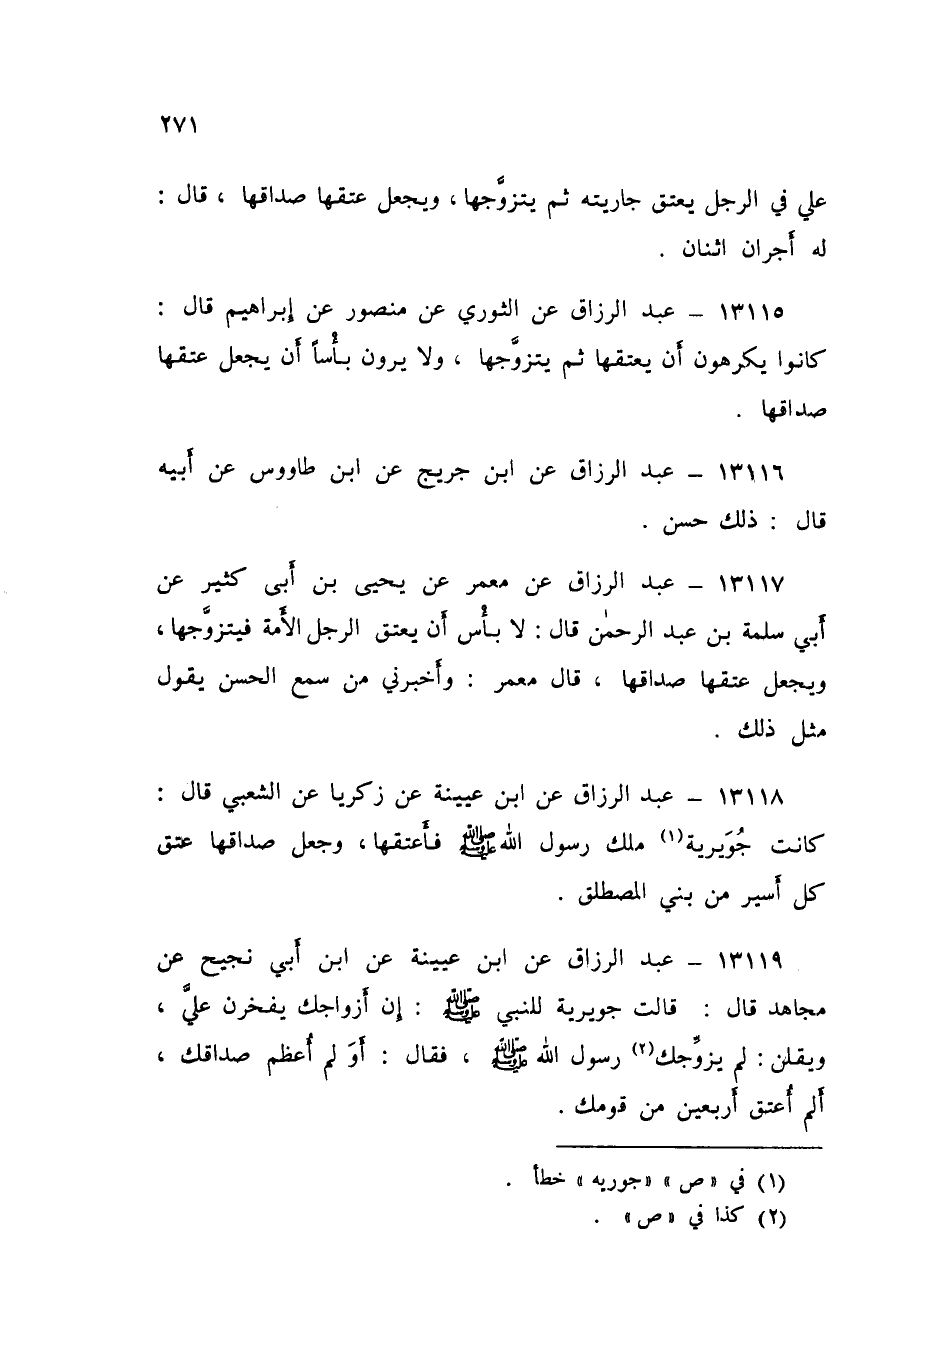 ٢٧١
علي في الرجل يعتق جاريته ثم يتزوَّجها ، ويجعل عتقها صداقها ، قال :
له أَجران اثنان .
١٣١١٥ – عبد الرزاق عن الثوري عن منصور عن إبراهيم قال :
كانوا يكرهون أَن يعتقها ثم يتزوَّجها ، ولا يرون بأْساً أَن يجعل عتقها
صداقها .
١٣١١٦ – عبد الرزاق عن ابن جريج عن ابن طاووس عن أَبيه
قال : ذلك حسن .
١٣١١٧ – عبد الرزاق عن معمر عن يحيى بن أَبى كثير عن
أَبي سلمة بن عبد الرحمٰن قال : لا بأْس أَن يعتق الرجل الأَمة فيتزوَّجها ،
ويجعل عتقها صداقها ، قال معمر : وأَخبرني من سمع الحسن يقول
مثل ذلك .
١٣١١٨ – عبد الرزاق عن ابن عيينة عن زكريا عن الشعبي قال :
كانت جُوَيرية(١) ملك رسول الله ﷺ فأَعتقها ، وجعل صداقها عتق
كل أَسير من بني المصطلق .
١٣١١٩ – عبد الرزاق عن ابن عيينة عن ابن أَبي نجيح عن
مجاهد قال : قالت جويرية للنبي ﷺ : إن أَزواجك يفخرن عليَّ ،
ويقلن : لم يزوِّجك(٢) رسول الله ﷺ ، فقال : أَوَ لم أُعظم صداقك ،
أَلم أُعتق أَربعين من قومك .
(١) في « ص » « جوريه » خطأ .
(٢) كذا في « ص » .